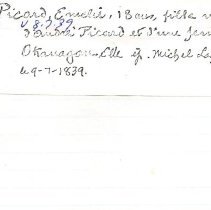 Picard, Emelie, 18 ans, fille n
18-7-89
d'André Picard et d'une fem
Okanagan. Elle ép. Michel La
le 9-7-1839.